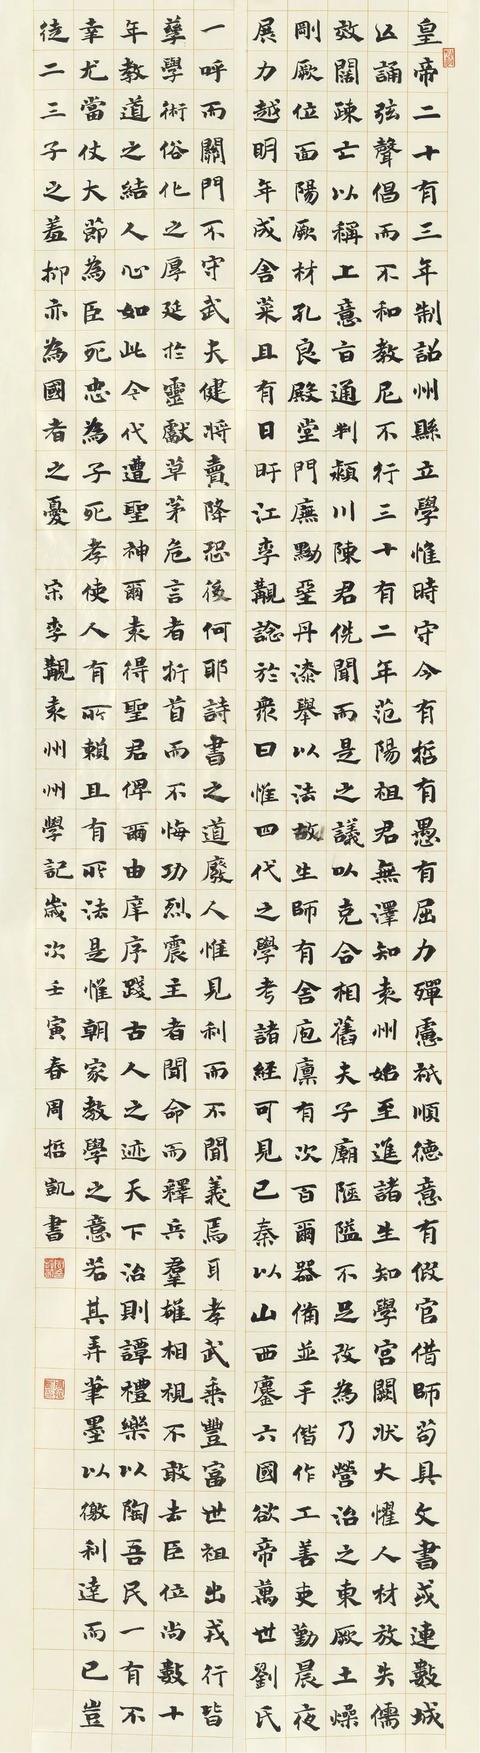 皇帝二十有三年制詔州縣立學惟時守令有哲有愚有屈力殫慮祇順德意有假官借師苟具文書或連數城
亡誦弦聲倡而不和教尼不行三十有二年范陽祖君無澤知袁州始至進諸生知學宮闕狀大懼人材放失儒
效闊疎亡以稱上意旨通判潁川陳君侁聞而是之議以克合相舊夫子廟陿隘不足改為乃營治之東厥土燥
剛厥位面陽厥材孔良殿堂門廡黝堊丹漆舉以法故生師有舍庖廩有次百爾器備並手偕作工善吏勤晨夜
展力越明年成舍菜且有日旴江李覯諗於衆曰惟四代之學考諸經可見已秦以山西鏖六國欲帝萬世劉氏
一呼而關門不守武夫健將賣降恐後何耶詩書之道廢人惟見利而不聞義焉耳孝武乘豐富世祖出戎行皆
孽學術俗化之厚延於靈獻草茅危言者折首而不悔功烈震主者聞命而釋兵羣雄相視不敢去臣位尚數十
年教道之結人心如此今代遭聖神爾袁得聖君俾爾由庠序踐古人之迹天下治則譚禮樂以陶吾民一有不
幸尤當仗大節為臣死忠為子死孝使人有所賴且有所法是惟朝家教學之意若其弄筆墨以徼利達而已豈
徒二三子之羞抑亦為國者之憂 宋李覯袁州州學記歲次壬寅春周哲凱書